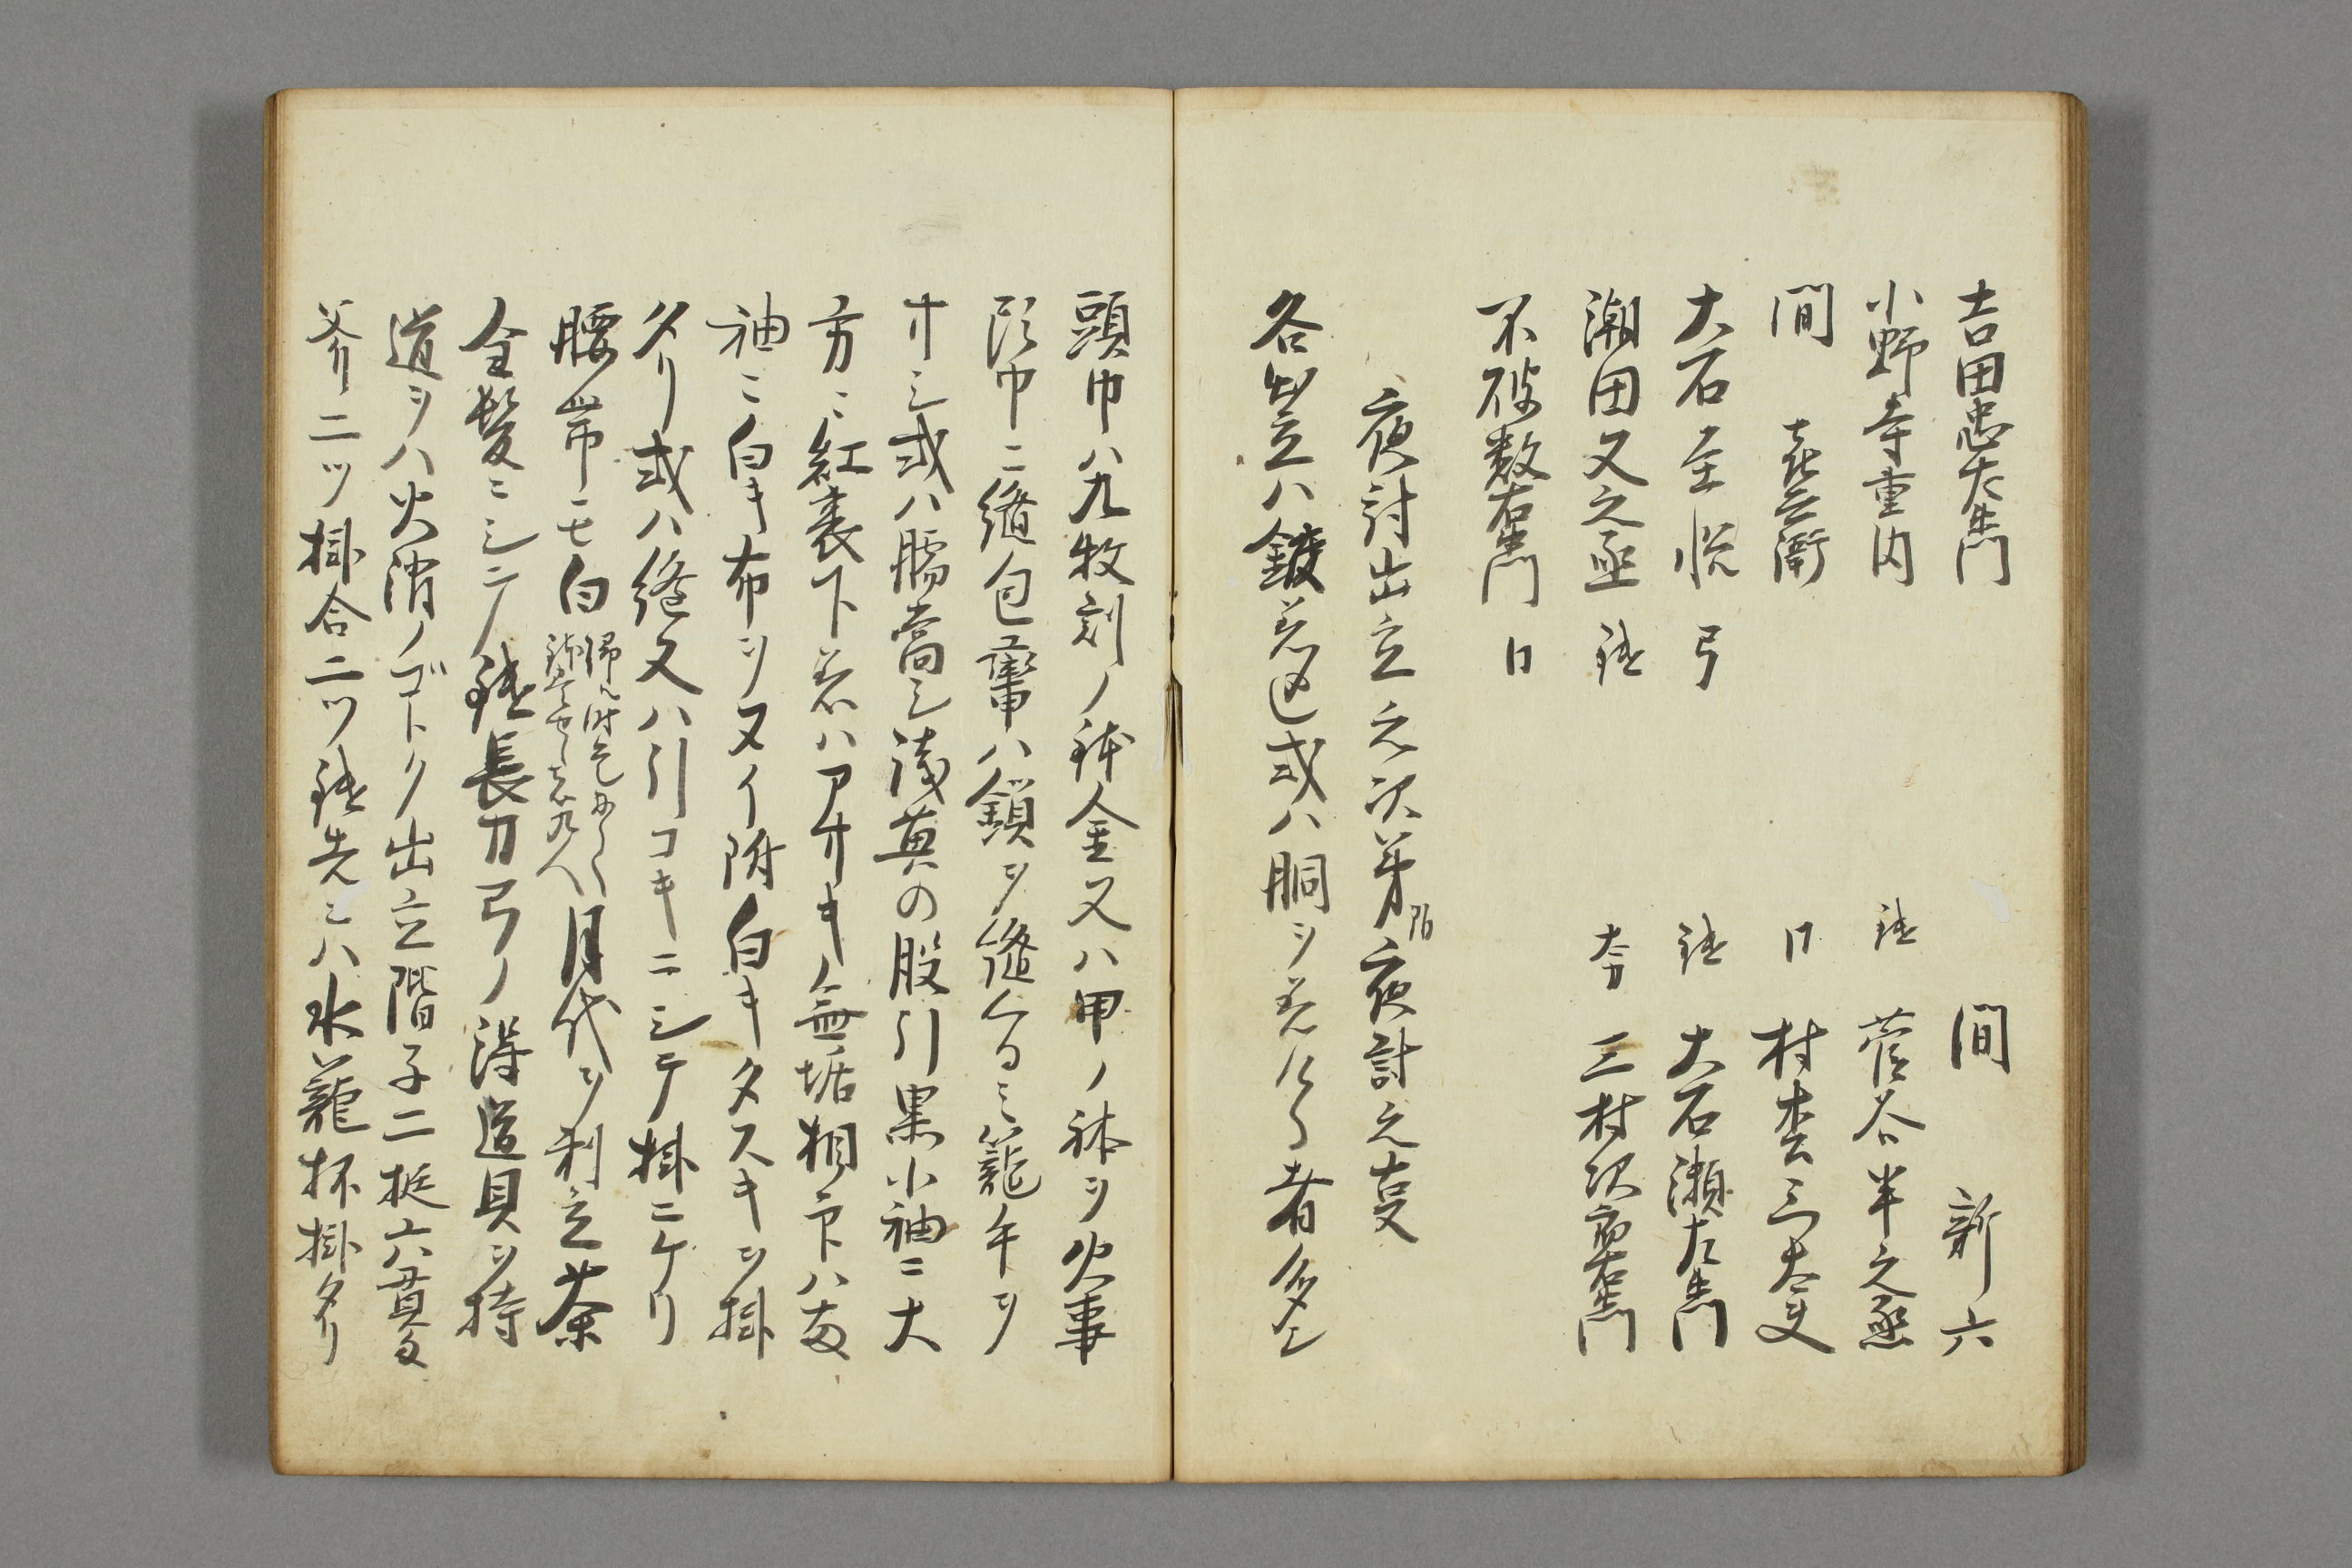 吉田忠左衛門　　　間　新六
小野寺十内　鑓　菅谷半之丞
間　喜兵衛　同　村松三太夫
大石主税　弓　鑓　大石瀬左衛門
潮田又之丞　鑓　大刀　三村次郎左衛門
不破数右衛門　同
夜討出立之次第附夜討之事
各出立ハ鎖着込或ハ胴ヲ着ル者多シ
頭巾ハ九牧割ノ鉢金又ハ甲ノ鉢ヲ火事
頭巾ニ縫包単ハ鎖ヲ縫くるミ籠手ヲ
サシ或ハ臑當シ浅黄の股引黒小袖ニ大
方ニ紅裏下着ハアサキ無垢相印ハ両
袖ニ白キ布ヲヌイ附白キタスキヲ掛
タリ或ハ縫又ハ引コキニシテ掛ニケリ
腰帯モ白
月代ヲ剃立茶
全髪ニシテ鑓長刀弓ノ得道具ヲ持
道ヲハ火消ノゴトク出立階子二挺六貫目
斧二ツ掛合二ツ鑓先ニハ水籠抔掛タリ